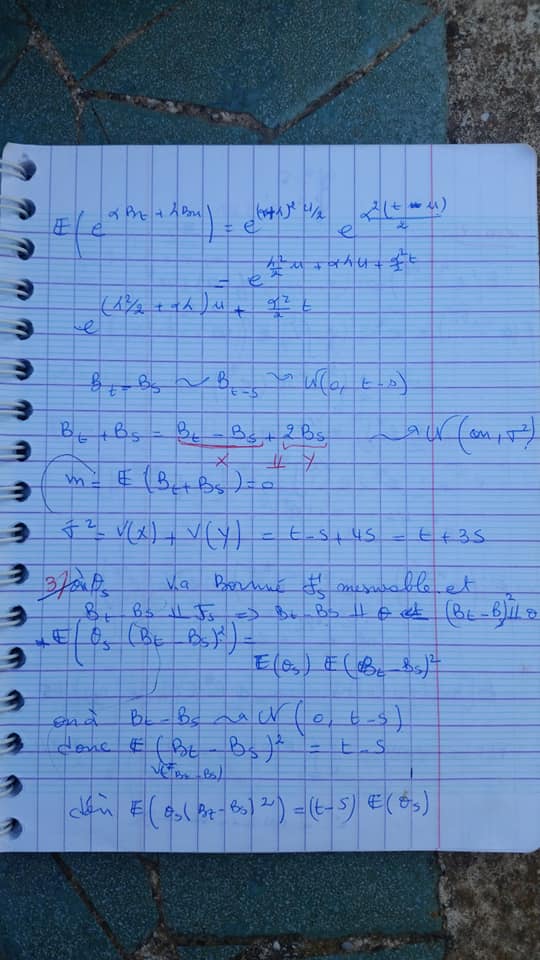 E(e^{αB_t + λB_u}) = e^{(α+λ)² u/2} e^{α²(t-u)/2}
= e^{λ²/2 u + αλu + α²/2 t}
e^{(λ²/2 + αλ)u + α²/2 t}
B_t - B_s ~ B_{t-s} ~ N(0, t-s)
B_t + B_s = B_t - B_s + 2B_s ~ N(m, σ²)
X ⊥⊥ Y
m = E(B_t + B_s) = 0
σ² = V(X) + V(Y) = t-s + 4s = t + 3s
3/ on a θ_s v.a Bornné F_s mesurable et
B_t - B_s ⊥⊥ F_s => B_t - B_s ⊥⊥ θ et (B_t - B_s)² ⊥⊥ θ
* E(θ_s (B_t - B_s)²) =
E(θ_s) E(B_t - B_s)²
on a B_t - B_s ~ N(0, t-s)
donc E(B_t - B_s)² = t-s
V(B_t - B_s)
d'où E(θ_s(B_t - B_s)²) = (t-s) E(θ_s)